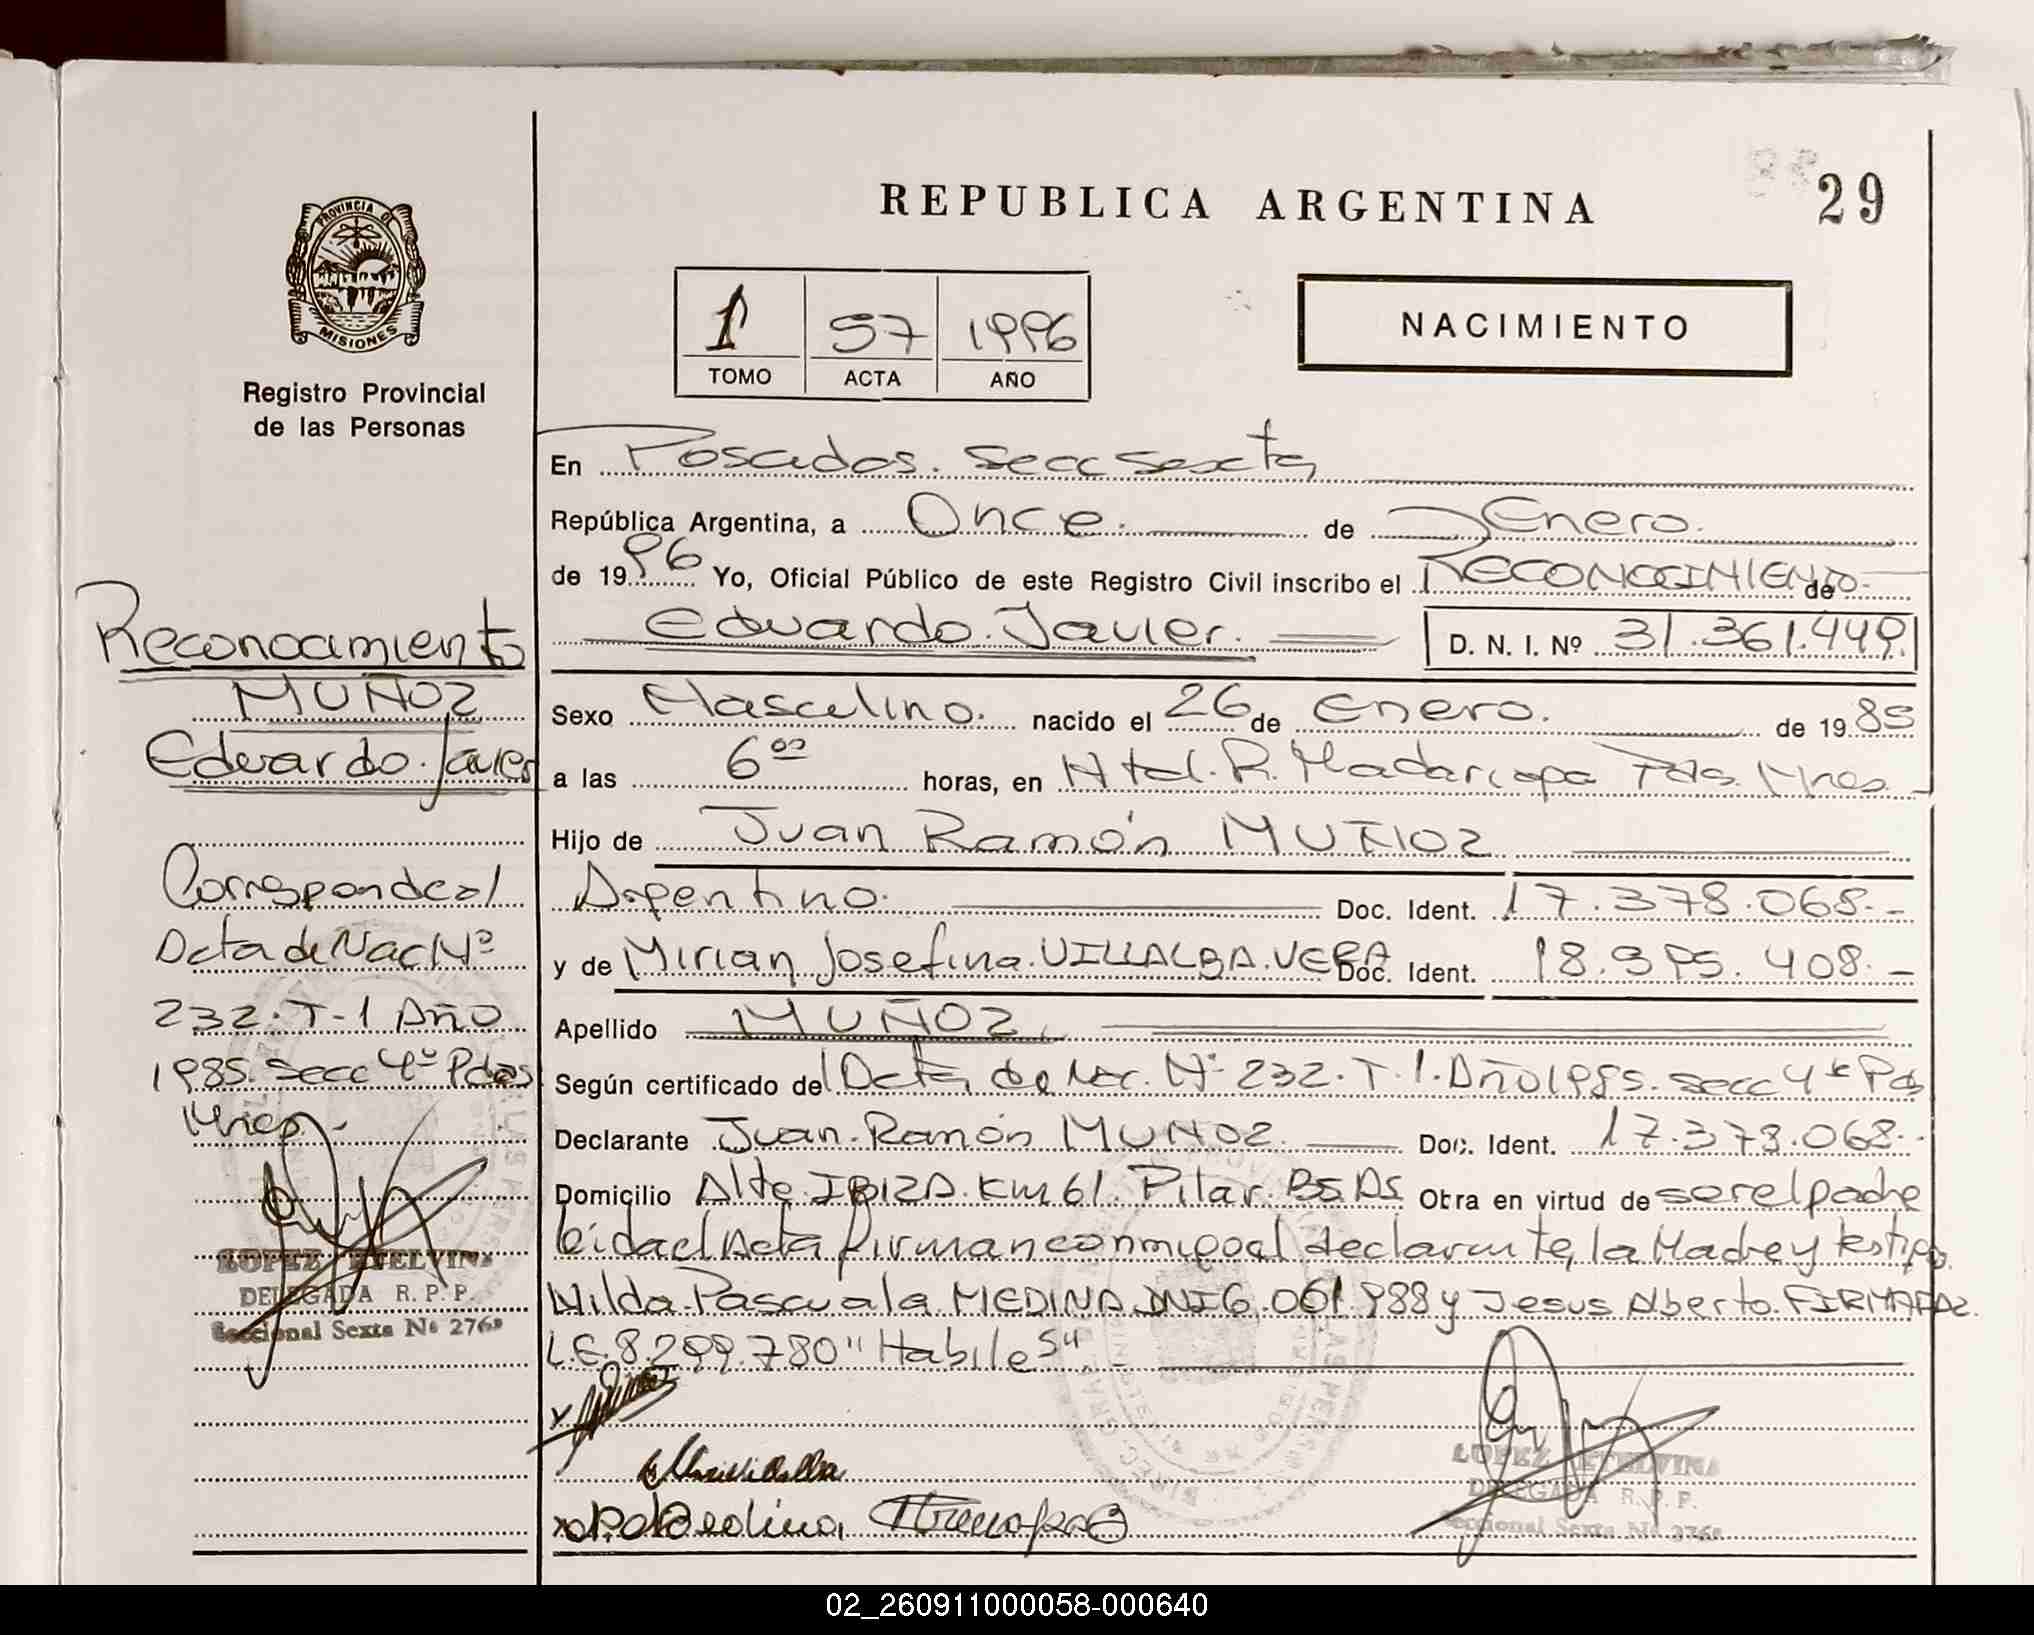 REPUBLICA ARGENTINA
29
PROVINCIA DE
MISIONES
Registro Provincial
de las Personas
1 57 1996
TOMO ACTA AÑO
NACIMIENTO
En Posadas. Secc Sexta
República Argentina, a Once. de Enero.
de 1996 Yo, Oficial Público de este Registro Civil inscribo el RECONOCIMIENTO de
Eduardo. Javier. D. N. I. Nº 31.361.449.
Sexo Masculino. nacido el 26 de Enero. de 1985
a las 6 00 horas, en Htal. R. Madariaga Pdas. Mnes.
Hijo de Juan Ramón MUÑOZ
Argentino. Doc. Ident. 17.378.068.-
y de Mirian Josefina. VILLALBA. VERA Doc. Ident. 18.395.408.-
Apellido MUÑOZ.
Según certificado de Acta de Nac. Nº 232. T. 1. Año 1985. Secc 4ª Pds
Declarante Juan. Ramón MUÑOZ. Doc. Ident. 17.378.068.
Domicilio Alte. IBIZA. Km 61. Pilar. Bs. As Obra en virtud de ser el padre
leida el Acta firman conmigo el declarante, la Madre y testigos
Nilda. Pascuala MEDINA DNI 6.061.988 y Jesus Alberto.
L.E. 8.299.780 "Habiles".-
Reconocimiento
MUÑOZ
Eduardo. Javier
Corresponde al
Acta de Nac Nº
232. T-1 Año
1985. Secc 4º Pdas
Mnes.-
LOPEZ ETELVINA
DELEGADA R. P. P.
Seccional Sexta Nº 2768
LOPEZ ETELVINA
DELEGADA R. P. P.
Seccional Sexta Nº 2768
02_260911000058-000640